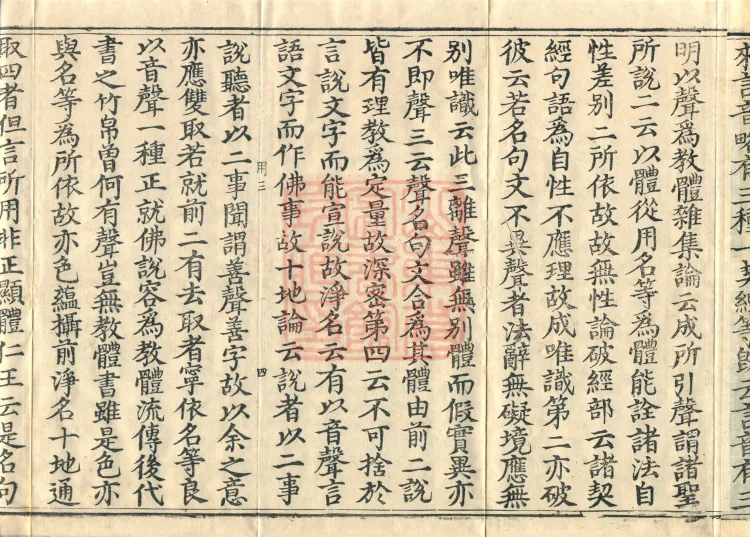 明以聲爲教體雜集論云成所引聲謂諸聖
所說二云以體從用名等爲體能詮諸法自
性差別二所依故故無性論破經部云諸契
經句語為自性不應理故成唯識第二亦破
彼云若名句文不異聲者法辭無礙境應無
別唯識云此三離聲雖無別體而假實異亦
不即聲三云聲名句文合爲其體由前二說
皆有理教爲定量故深密第四云不可捨於
言說文字而能宣說故淨名云有以音聲言
語文字而作佛事故十地論云說者以二事
用三
四
說聽者以二事聞謂善聲善字故以余之意
亦應雙取若就前二有去取者寧依名等良
以音聲一種正就佛說容爲教體流傳後代
書之竹帛曽何有聲豈無教體書雖是色亦
與名等爲所依故亦色蘊攝前淨名十地通
取四者但言所用非正顯體仁王云是名句